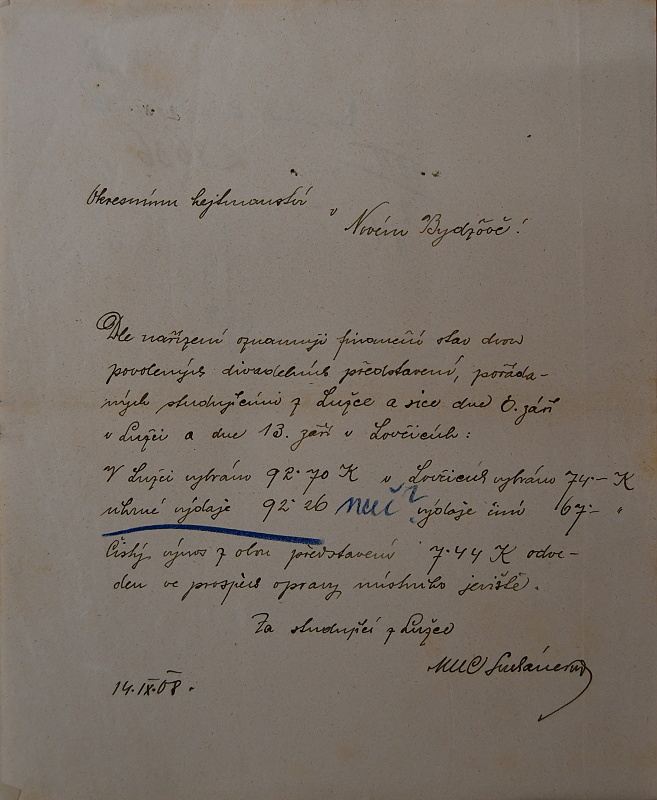 Okresnímu hejtmanství
v
Novém Bydžově!
Dle nařízení oznamuji finanční stav dvou
povolených divadelních představení, pořáda-
ných studujícími z Lužce a sice dne 6. září
v Lužci a dne 13. září v Lovčicích:
V Lužci vybráno 92·70 K v Lovčicích vybráno 74·– K
uhrné výdaje 92·26 výdaje činí 67·– "
Čistý výnos z obou představení 7·44 K odve-
den ve prospěch opravy místního jeviště.
Za studující z Lužce
MUC
14.IX.08.